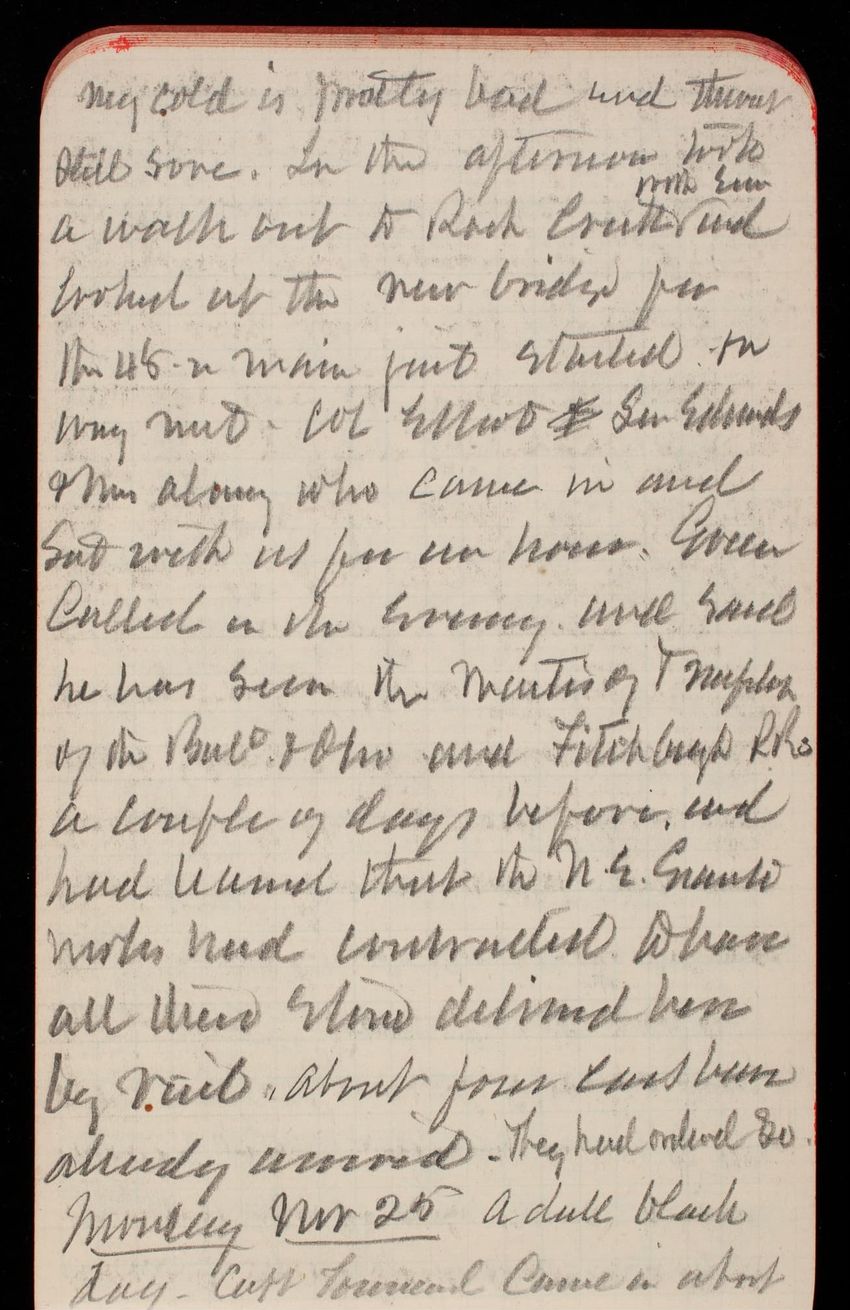 my cold is pretty bad and throat
still sore. In the afternoon took
a walk out to Rock Creek and
with
looked at the new bridge for
the 48 in main just started. On
way met Col Elliot Gen Edwards
along who came in and
Sat with us for an hour. Green
Called in the Evening and said
he has seen the
of the Balto. & Ohio and Fitchburgh RRs
a couple of days before, and
had learned that the N.E. Granite
works had contracted to have
all their Stone delivered here
by rail. About four cars have
already arrived. They had ordered 80.
Monday Nov 25 A dull black
day. Capt Townsend Came in about